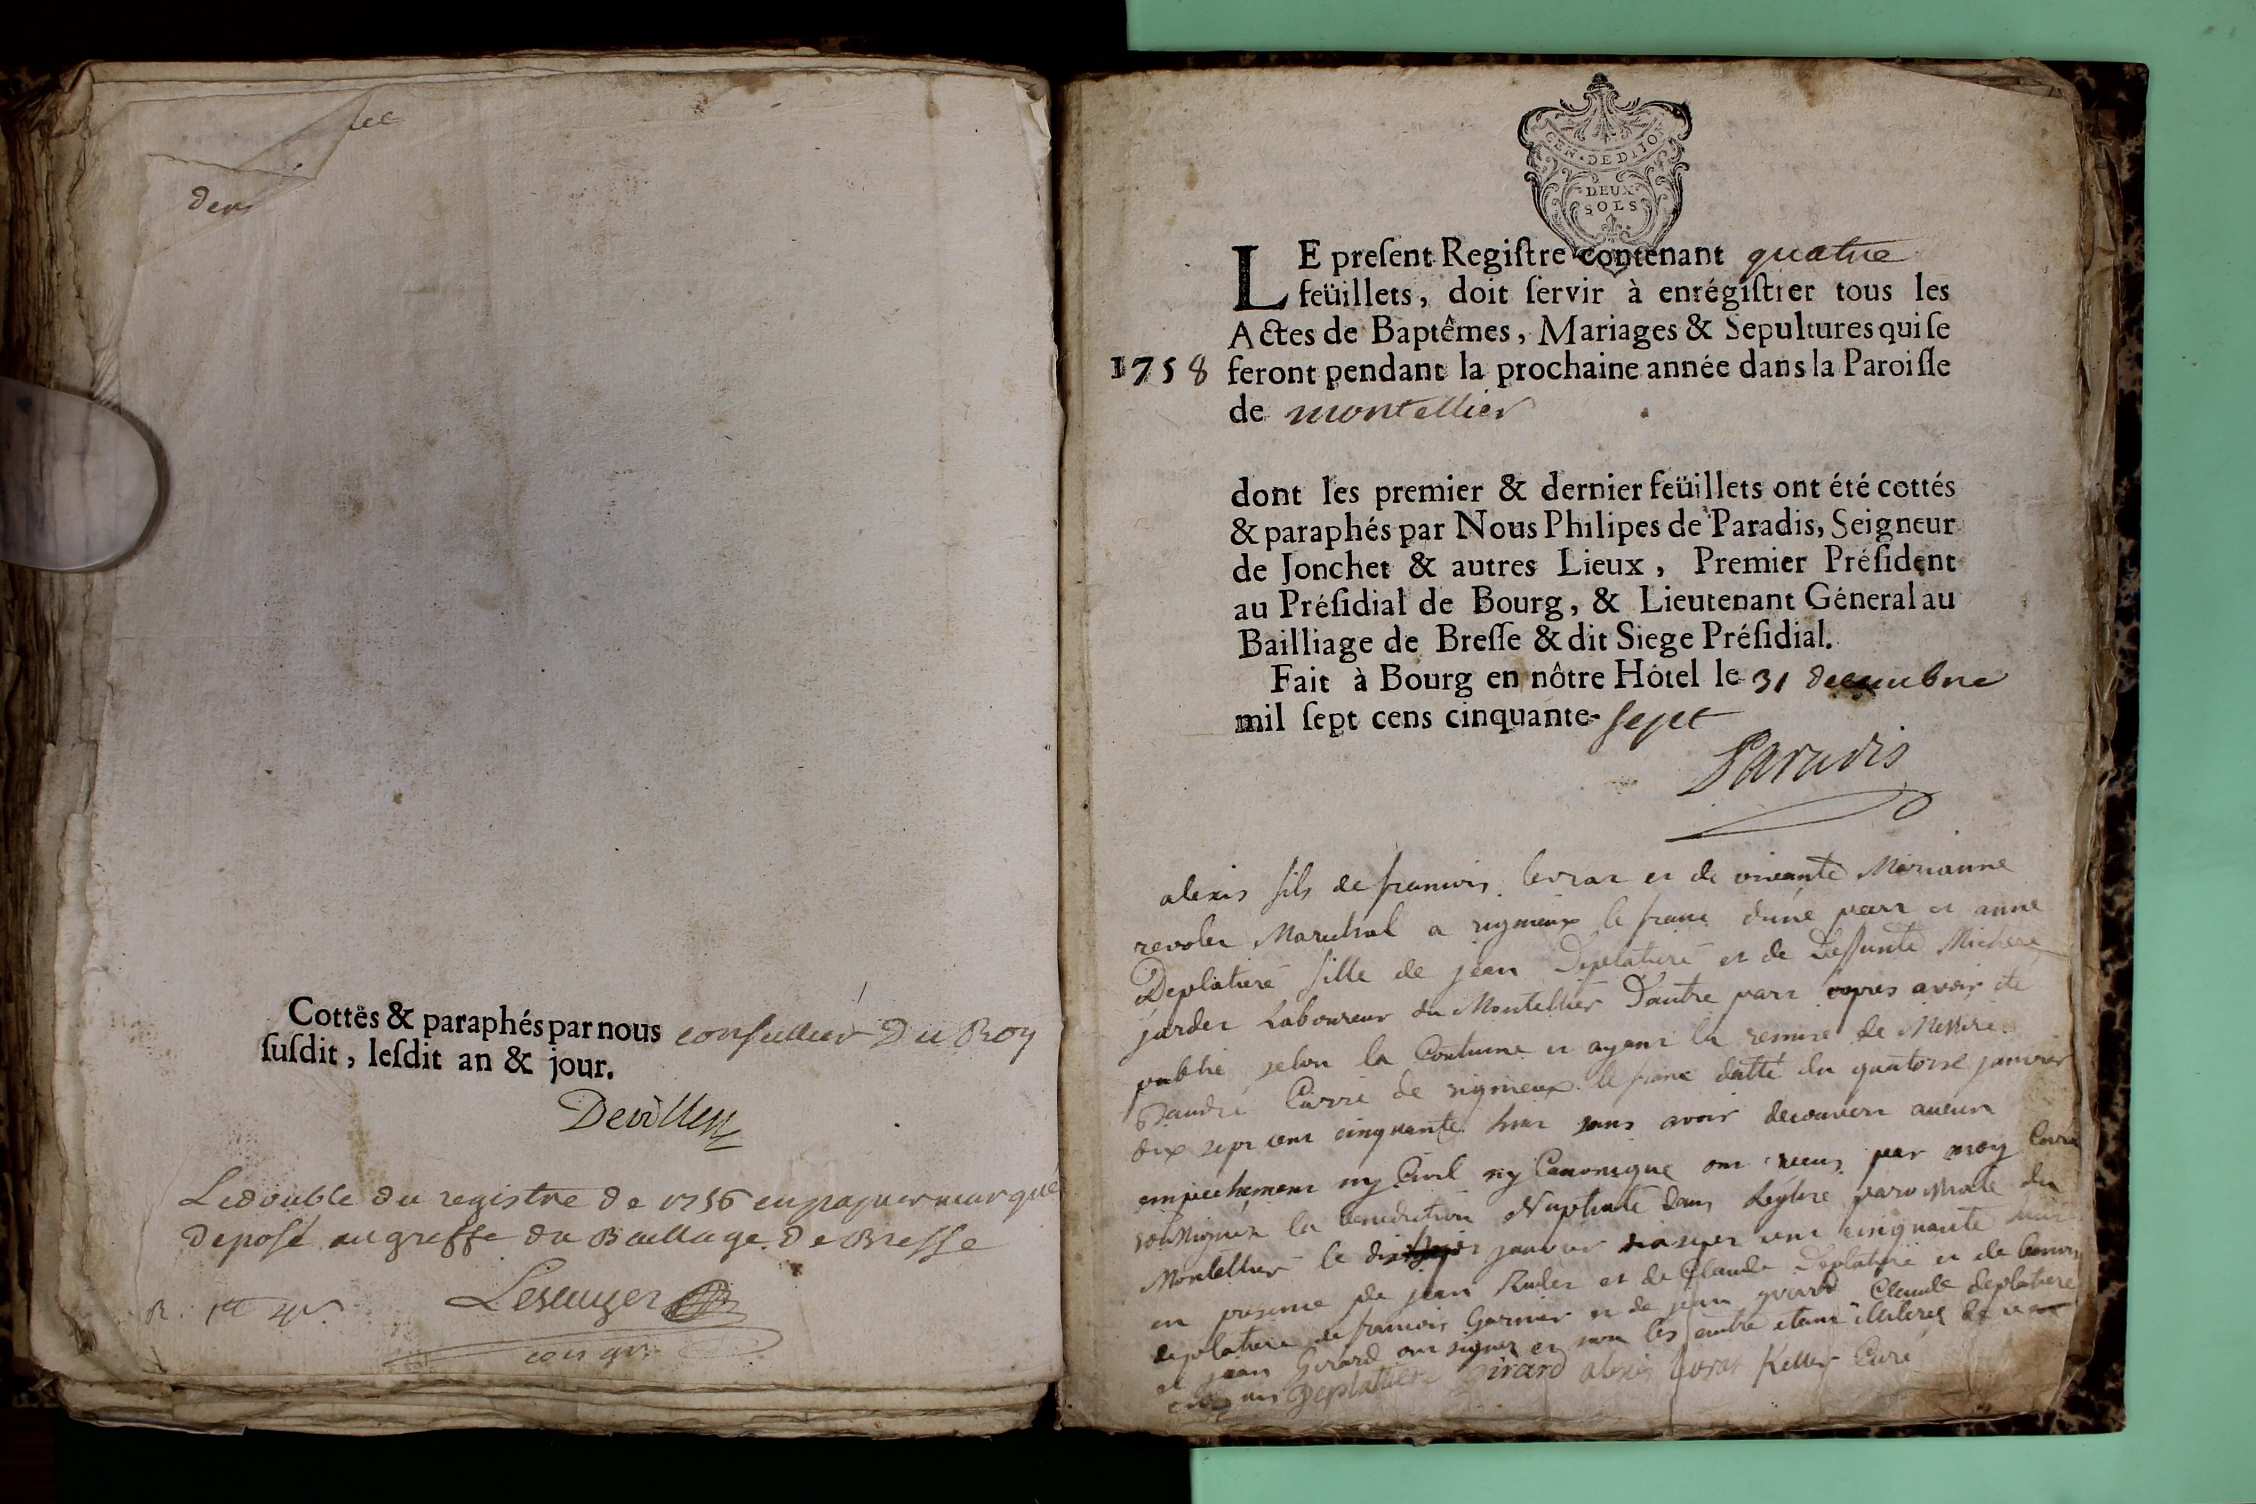 der
Cottès & paraphés par nous conseillier Du Roy
susdit, lesdit an & jour.
Devillien
Le double du registre de 1756 en papier marqué
deposé au greffe du Baillage de Bresse
GEN · DE DIJON
DEUX
SOLS
LE present Registre contenant quatre
feüillets, doit servir à enrégistrer tous les
Actes de Baptêmes, Mariages & Sepultures qui se
1758 feront pendant la prochaine année dans la Paroisse
de montellier
dont les premier & dernier feüillets ont été cottés
& paraphés par Nous Philipes de Paradis, Seigneur
de Jonchet & autres Lieux, Premier Président
au Présidial de Bourg, & Lieutenant Géneral au
Bailliage de Bresse & dit Siege Présidial.
Fait à Bourg en nôtre Hôtel le 31 decembre
mil sept cens cinquante-sept
Paradis
alexis fils de francois levrar et de vivante Marianne
revoler Marechal a rignieux le franc d'une parr et anne
Deplatiere fille de jean Deplatiere et de Deffunte
jarder Laboureur du Montellier D'autre parr apres avoir ete
publie selon la Coutume et ayant la remise de Messire
Curré de rignieux le franc datté du quatorse janvier
dix sept cent cinquante huit sans avoir decouvert aucun
empechement ny Civil ny Canonique ont reçus par moy Curé
soussignez la benediction Nuptiale dans Leglise paroissiale du
Montellier le janvier cent cinquante huit
en presence de jean et de Claude Deplatiere et de
deplatiere de francois Garnier et de jean girard Claude deplatiere
et jean Girard ont signez et non les autre etant illiteres de ce
Deplattiere Girard alexis Keller Curé